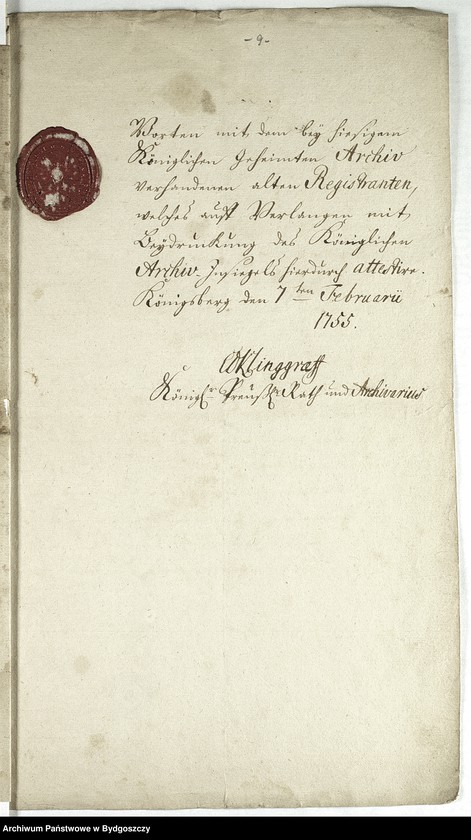 -9-
Worten mit dem bey hiesigem
Königlichen Geheimten Archiv
verhandenen alten Registranten,
welches auff Verlangen mit
Beydruckung des Königlichen
Archiv-Insiegels hierdurch attestire.
Königsberg den 7ten Februarii
1755.
Klinggraff
Königl. Preuß. Rath und Archivarius
Archiwum Państwowe w Bydgoszczy